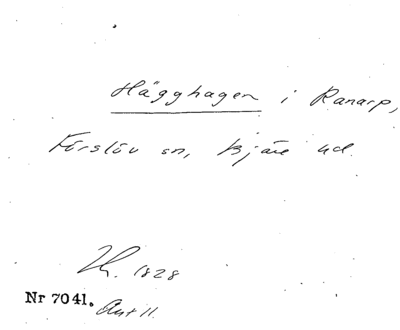 Hägghagen i Ranarp,
Förslöv sn, Bjäre hd.
Lh. 1828
Nr 7041. Akt 11.